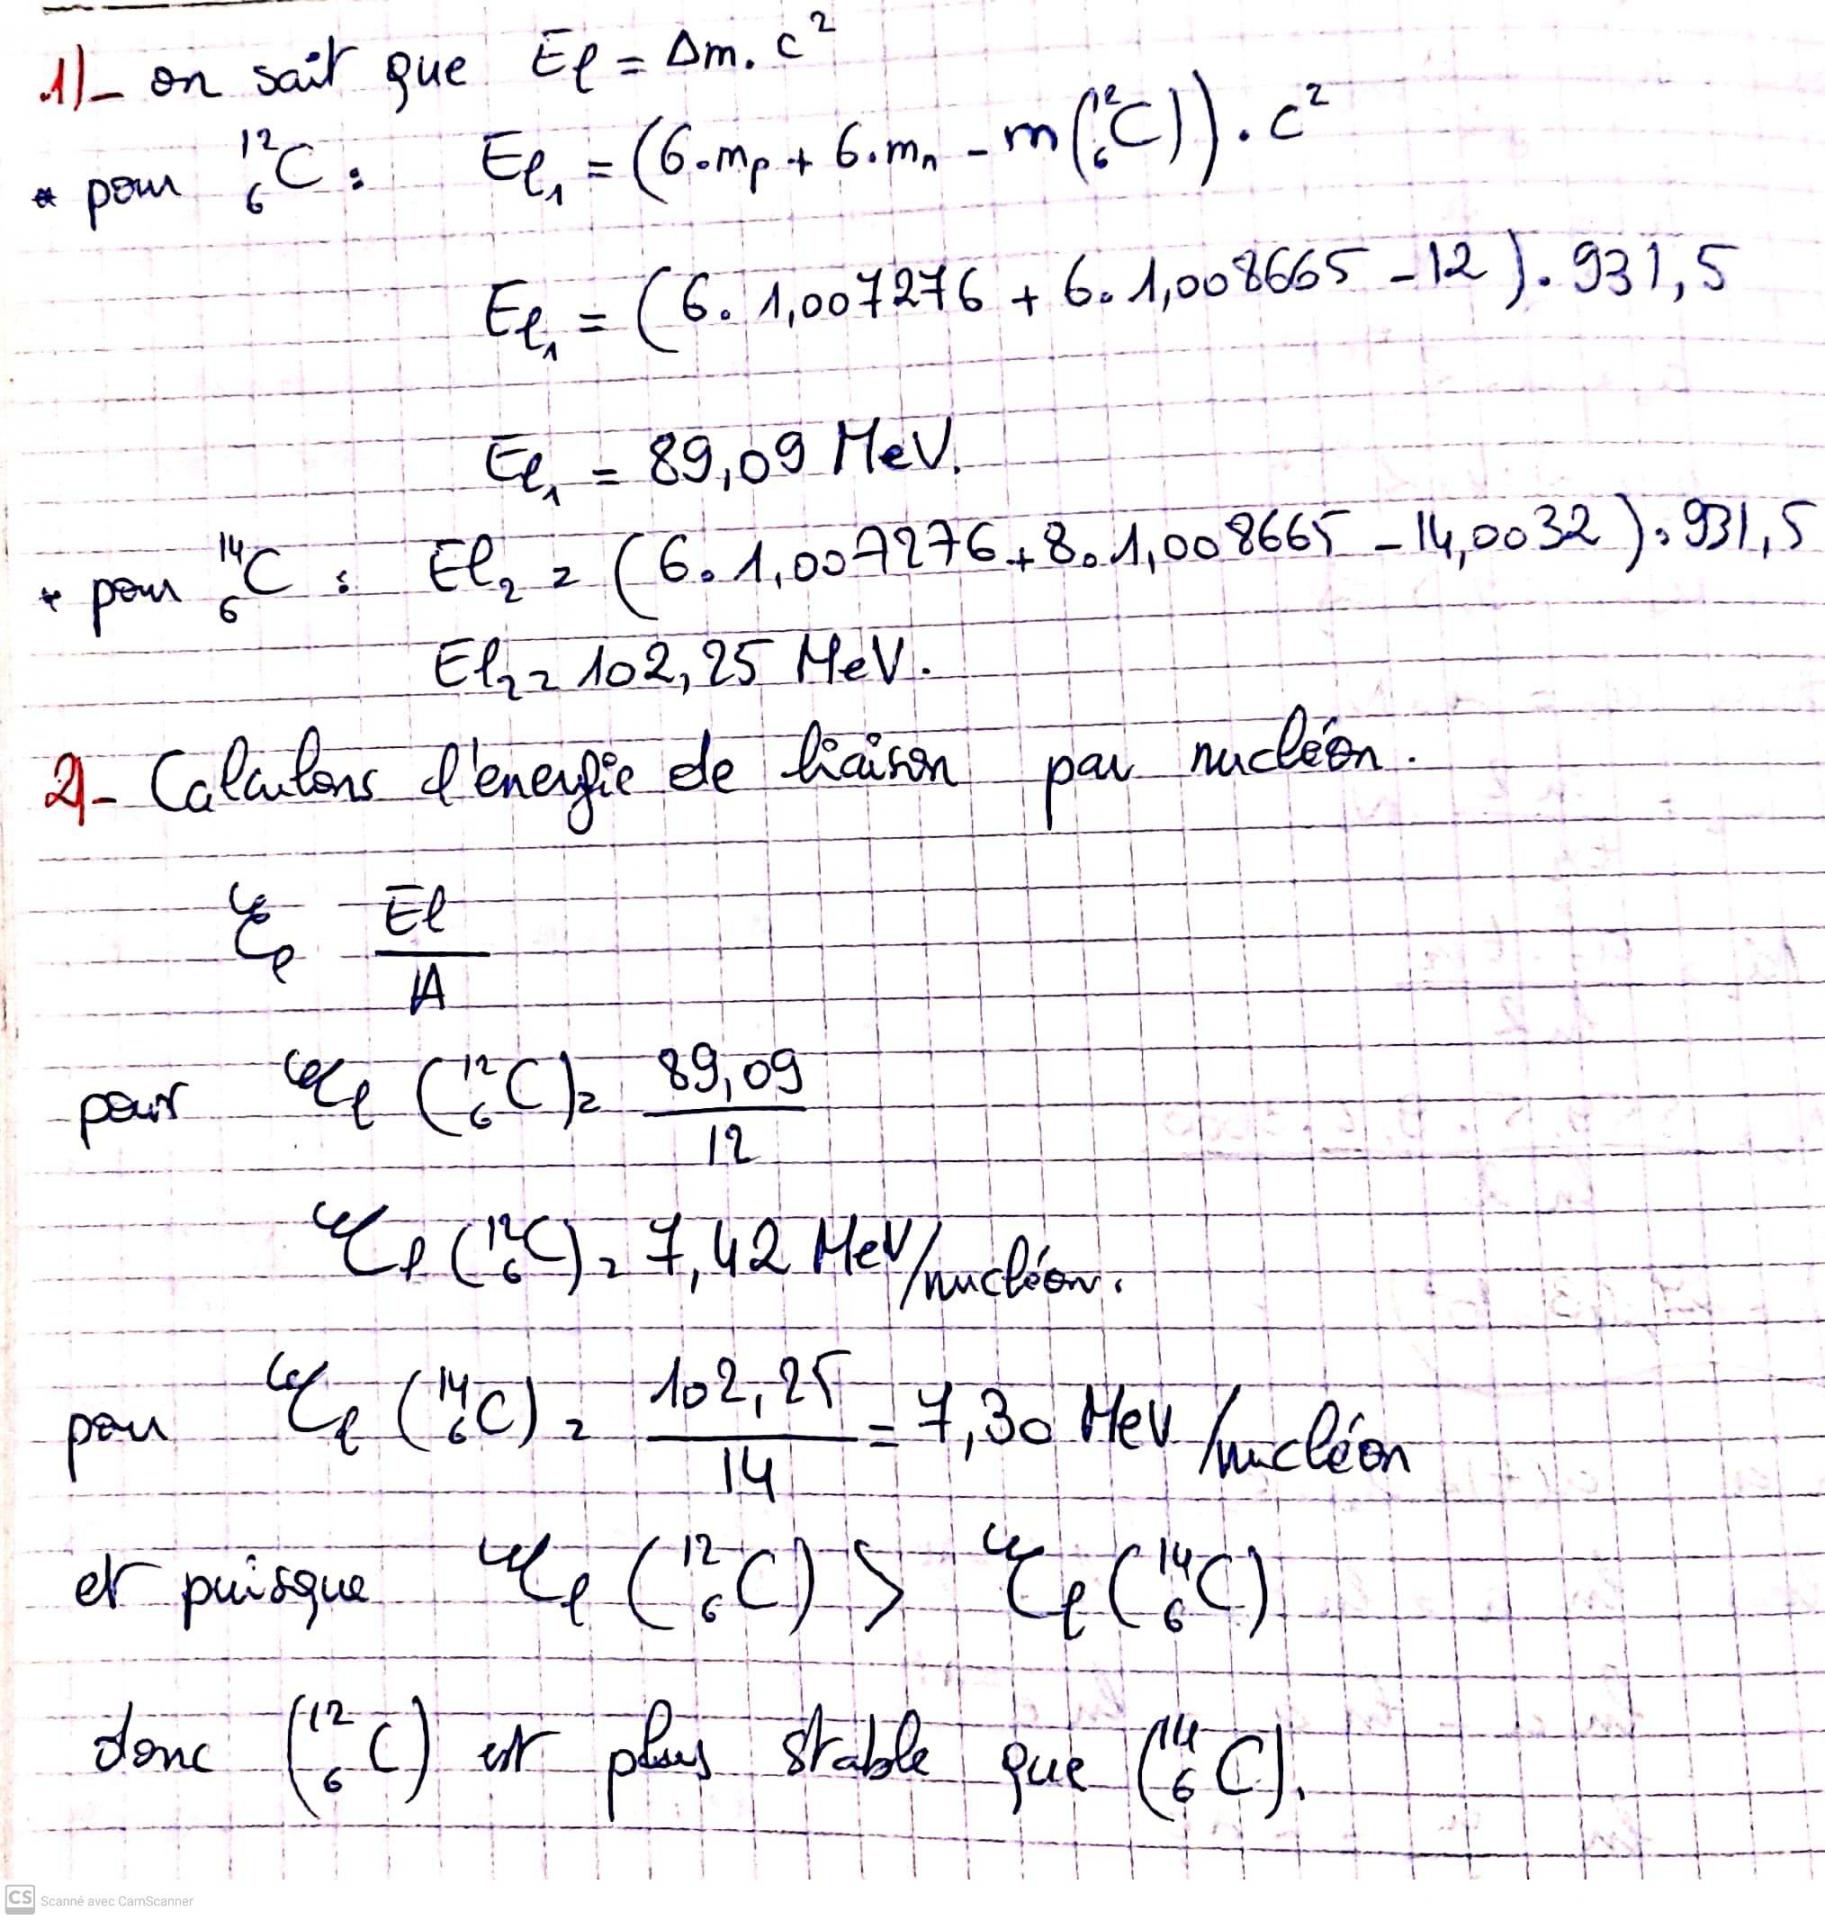 1)- on sait que El = Δm. c²
* pour ¹²₆C : El₁ = (6.mp + 6.mn - m(¹²₆C)). c²
El₁ = (6. 1,007276 + 6. 1,008665 - 12). 931,5
El₁ = 89,09 MeV.
* pour ¹⁴₆C : El₂ = (6. 1,007276 + 8. 1,008665 - 14,0032). 931,5
El₂ = 102,25 MeV.
2)- Calculons l'energie de liaison par nucléon.
ℰl El/A
pour ℰl (¹²₆C) = 89,09/12
ℰl (¹²₆C) = 7,42 MeV/nucléon.
pour ℰl (¹⁴₆C) = 102,25/14 = 7,30 MeV/nucléon
et puisque ℰl (¹²₆C) > ℰl (¹⁴₆C)
donc (¹²₆C) est plus stable que (¹⁴₆C).
CS Scanné avec CamScanner